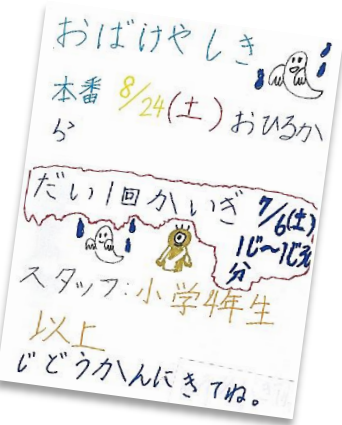 おばけやしき
本番 8/24(土) おひるか
ら
だい1回かいぎ 7/6(土)
1じ〜1じ30
分
スタッフ:小学4年生
以上
じどうかんにきてね。